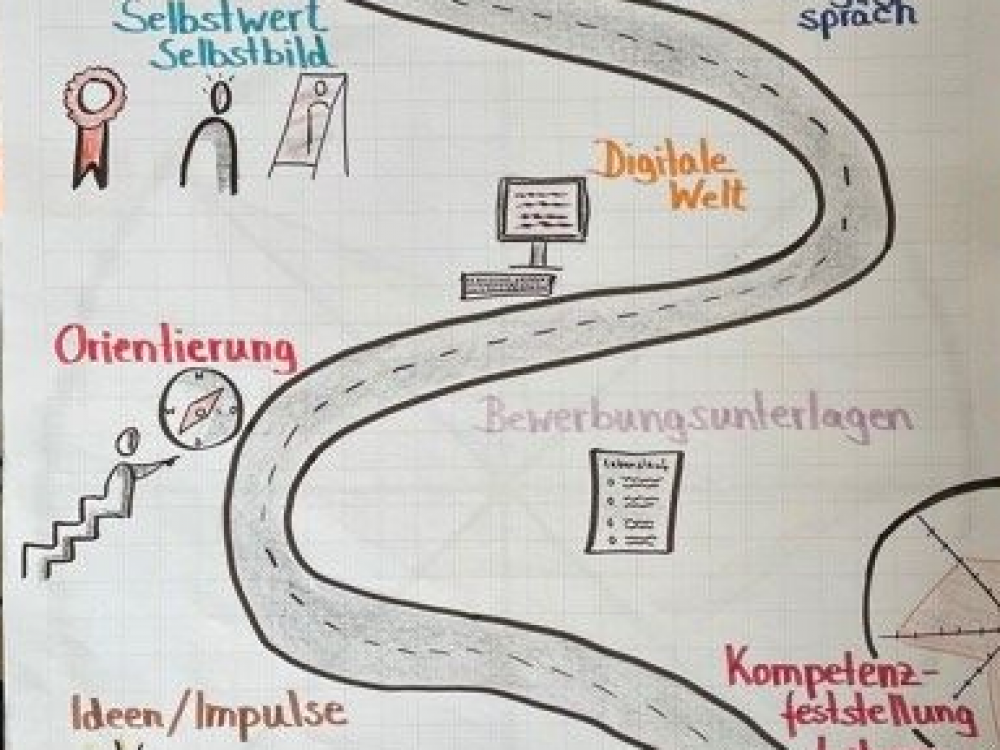 Selbstwert
Selbstbild
sprach
Digitale
Welt
Orientierung
Bewerbungsunterlagen
Lebenslauf
Kompetenz-
feststellung
Ideen/Impulse